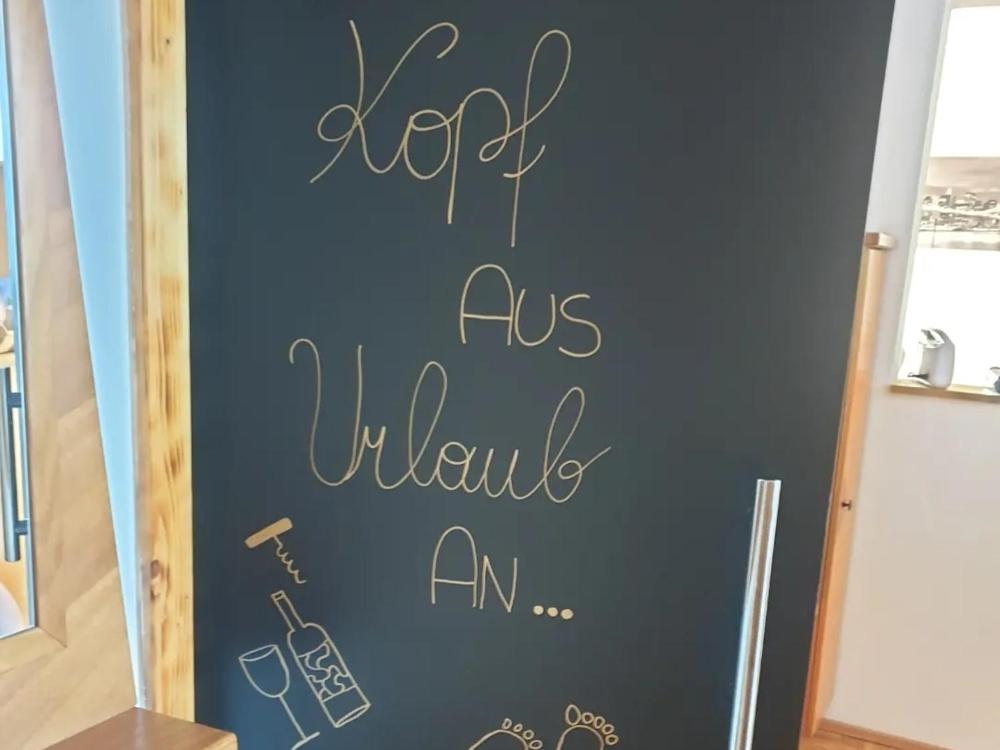 Kopf
AUS
Urlaub
AN...